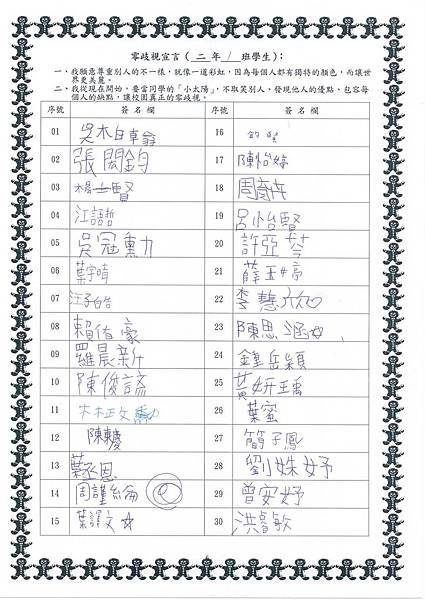 零歧視宣言(二年/班學生):
一、我願意尊重別人的不一樣,就像一道彩虹,因為每個人都有獨特的顏色,而讓世
界更美麗。
二、我從現在開始,要當同學的「小太陽」,不取笑別人、發現他人的優點、包容每
個人的缺點,讓校園真正的零歧視。
序號 簽名欄 序號 簽名欄
01 16
02 張閎鈞 17 陳怡婷
03 18 周奇
04 江語哲 19 呂怡賢
05 吳冠勳 20 許亞芩
06 葉宇晴 21 薛玉婷
07 汪子皓 22 李慧欣
08 賴侑豪 23 陳思涵
09 羅晨新 24 鐘岳穎
10 陳俊諺 25 黃妍瑀
11 林政勳 26 葉蜜
12 陳慶 27 簡子鳳
13 葉丞恩 28 劉姝妤
14 周謹綸 29 曾安妤
15 葉譯文☆ 30 洪睿敏